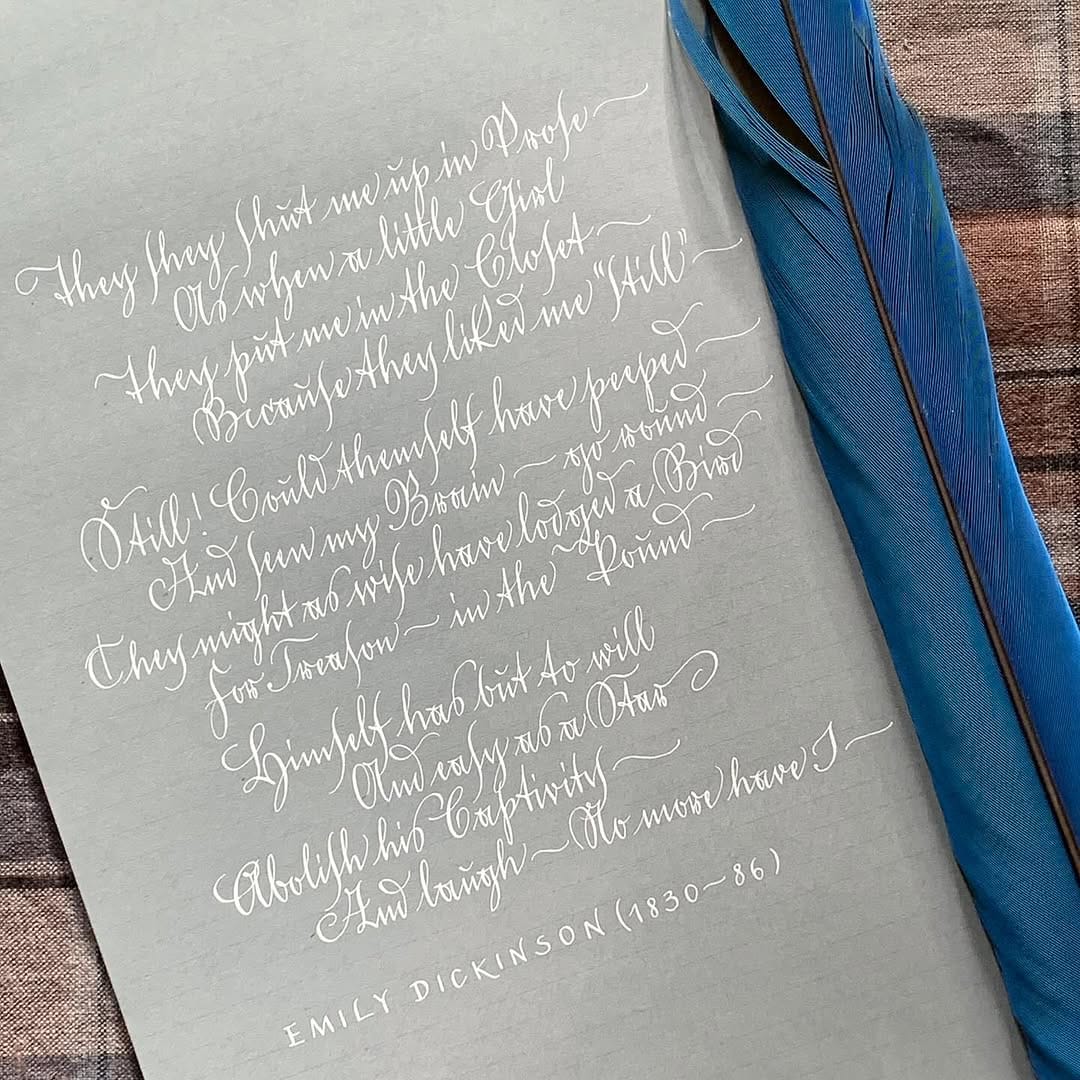 They shey shut me up in Prose ~
As when a little Girl
They put me in the Closet ~
Because they liked me "still" ~
Still! Could themself have peeped ~
And seen my Brain ~ go round ~
They might as wise have lodged a Bird
For Treason ~ in the Pound ~
Himself has but to will
And easy as a Star
Abolish his Captivity ~
And laugh ~ No more have I ~
EMILY DICKINSON (1830~86)